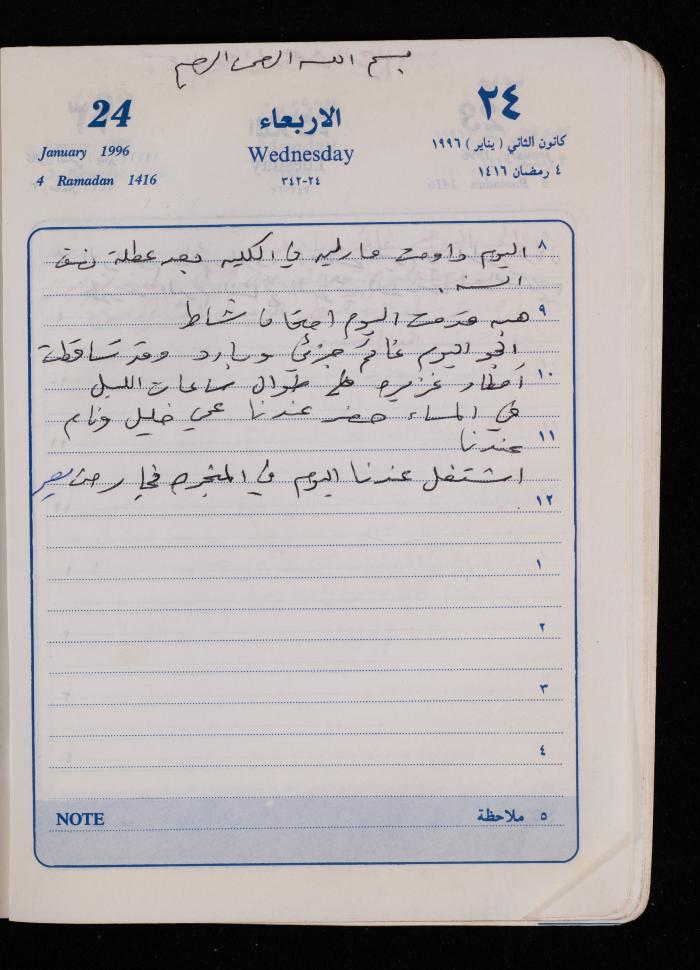 بسم الله الرحمن الرحيم
24
الاربعاء
٢٤
January 1996
Wednesday
كانون الثاني ( يناير ) ١٩٩٦
4 Ramadan 1416
٢٤-٣٤٢
٤ رمضان ١٤١٦
٨ اليوم داومت مارليه في الكليه بعد عطلة نصف
السنه .
٩ هبه قدمت اليوم امتحان
الجو اليوم غائم جزئي وبارد وقد تساقطت
١٠ أمطار غزيره طوال ساعات الليل
في المساء حضر عندنا عمي خليل ونام
١١ عندنا
اشتغل عندنا اليوم في المنجره
١٢
١
٢
٣
٤
NOTE
٥ ملاحظة